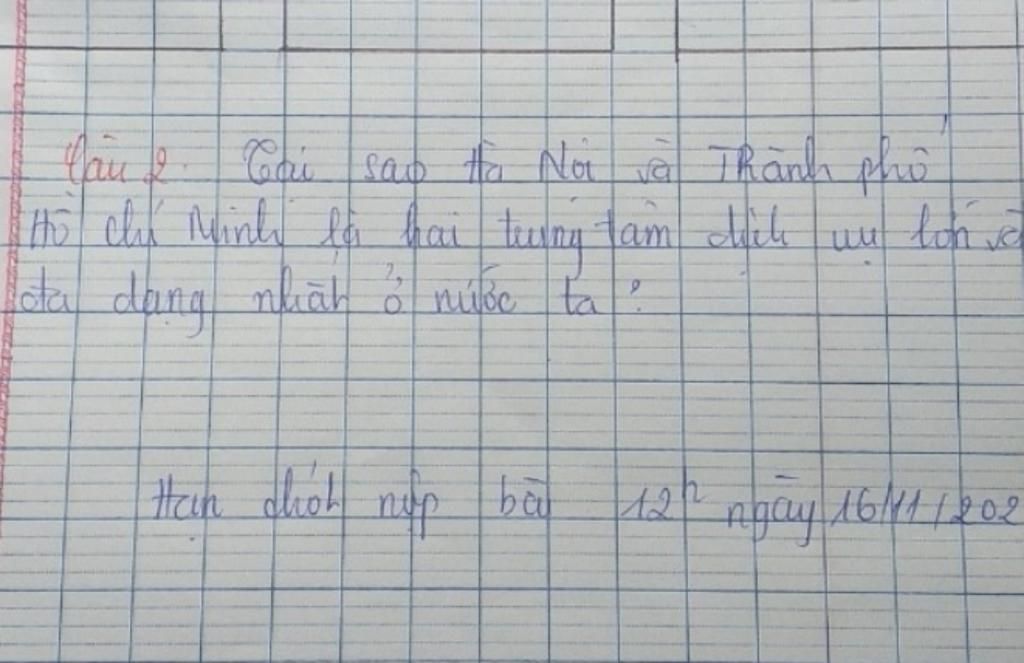 Câu 2. Tại sao Hà Nội và Thành phố
Hồ Chí Minh là hai trung tâm dịch vụ lớn và
đa dạng nhất ở nước ta?
Hạn chót nộp bài 12h ngày 16/11/202